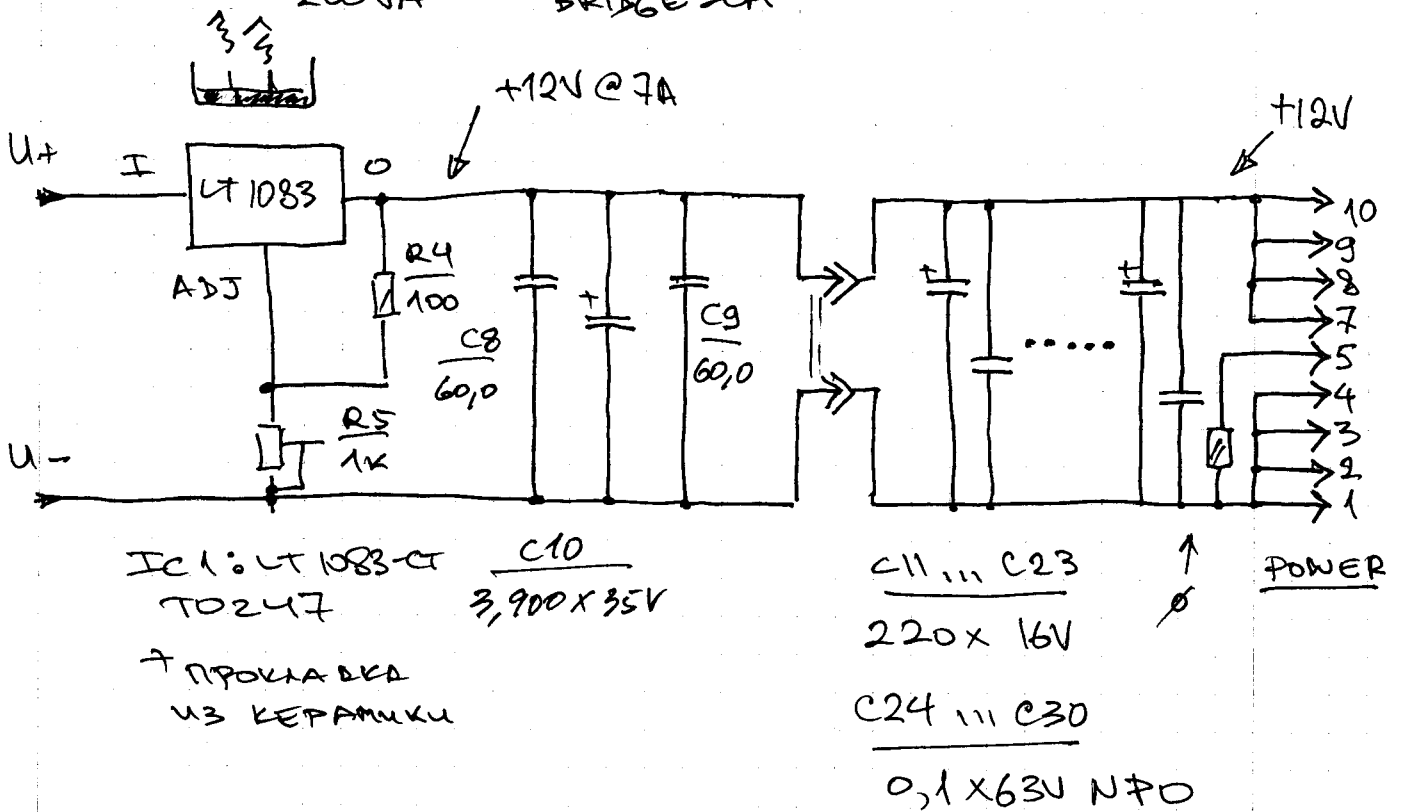 200VA BRIDGE 50A
+12V @ 7A
+12V
U+
I
LT1083
O
ADJ
R4
100
C8
60,0
+
C9
60,0
R5
1K
U-
+
+
.....
10
9
8
7
5
4
3
2
1
POWER
IC1: LT1083-CT
TO247
+ ПРОКЛАДКА
ИЗ КЕРАМИКИ
C10
3,900 X 35V
C11 ... C23
220 x 16V
C24 ... C30
0,1 X 63V NPO